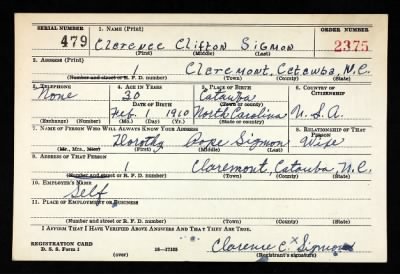 SERIAL NUMBER 1. NAME (Print) ORDER NUMBER
479 Clarence Clifton Sigmon 2375
(First) (Middle) (Last)
2. ADDRESS (Print)
1 Claremont, Catawba, N.C.
(Number and street or R. F. D. number) (Town) (County) (State)
3. TELEPHONE 4. AGE IN YEARS 5. PLACE OF BIRTH 6. COUNTRY OF CITIZENSHIP
None 30 Catawba
DATE OF BIRTH (Town or county)
Feb. 1 1910 North Carolina U.S.A.
(Exchange) (Number) (Mo.) (Day) (Yr.) (State or country)
7. NAME OF PERSON WHO WILL ALWAYS KNOW YOUR ADDRESS 8. RELATIONSHIP OF THAT PERSON
Dorothy Pope Sigmon Wife
(Mr., Mrs., Miss) (First) (Middle) (Last)
9. ADDRESS OF THAT PERSON
1 Claremont, Catawba, N.C.
(Number and street or R. F. D. number) (Town) (County) (State)
10. EMPLOYER'S NAME
Self
11. PLACE OF EMPLOYMENT OR BUSINESS
(Number and street or R. F. D. number) (Town) (County) (State)
I AFFIRM THAT I HAVE VERIFIED ABOVE ANSWERS AND THAT THEY ARE TRUE.
REGISTRATION CARD
D. S. S. Form 1 16—17105 Clarence C x Sigmon
(Registrant's signature)